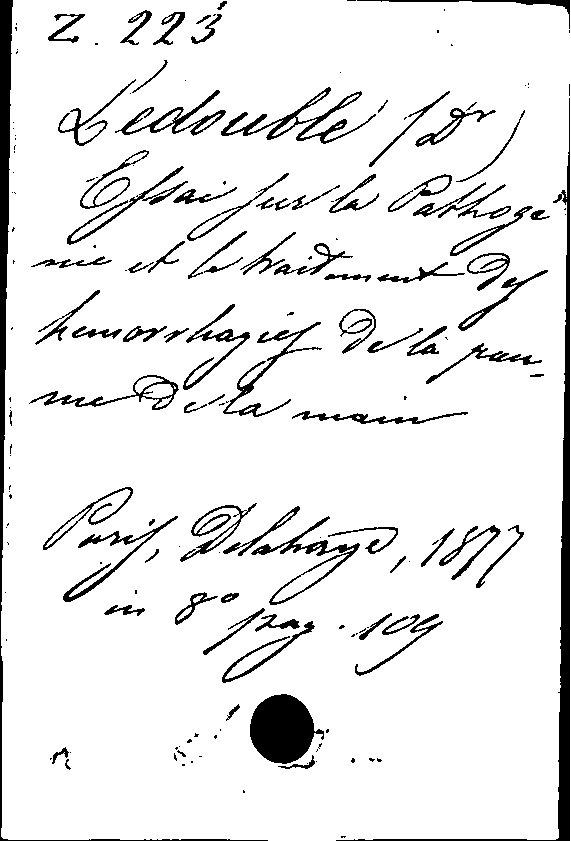 Z. 223
Ledouble (Dr)
Essai sur la Pathogé
nie et le traitement des
hemorrhagies de la pau-
me de la main
Paris, Delahaye, 1877
in 8° pag. 109